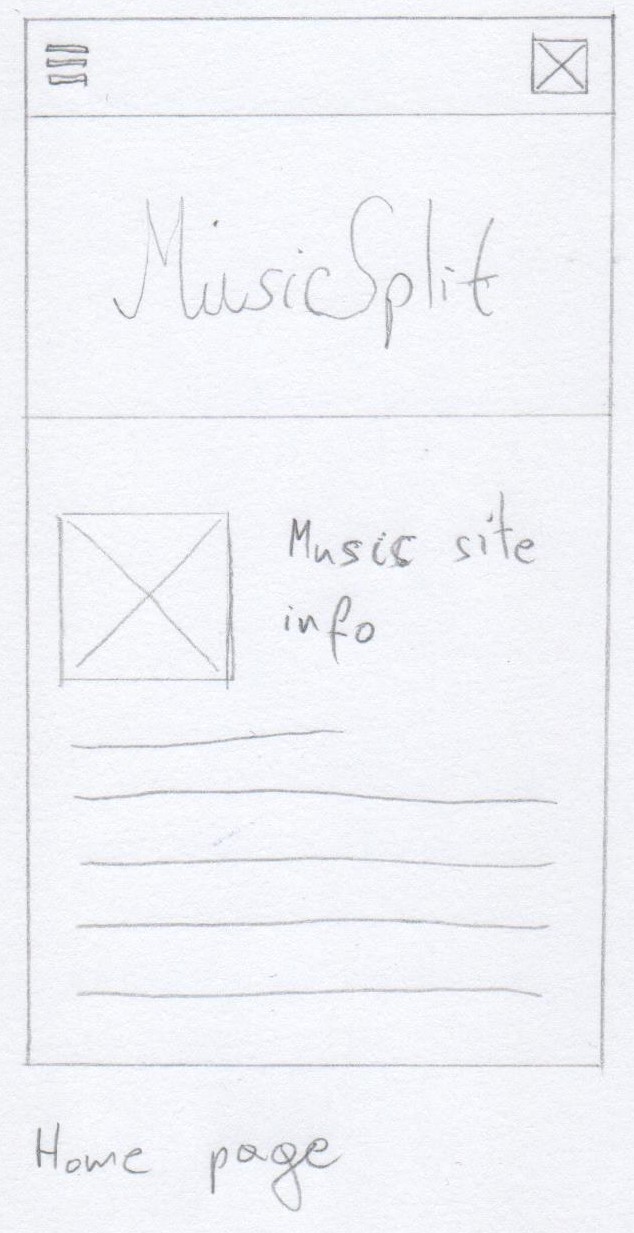 MusicSplit
Music site
info
Home page